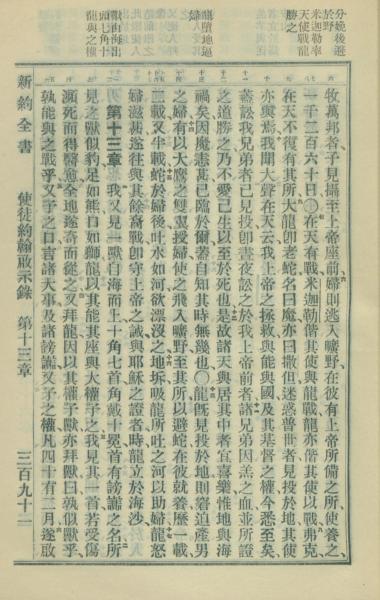 分娩後避
於野
米迦勒率
天使戰龍
勝之
龍墮地逼
婦
獸由海出
七角十首
龍與之權
牧萬邦者、子見攝至上帝座前、婦則逃入曠野、在彼有上帝所備之所、使養之、
一千二百六十日、〇在天有戰、米迦勒偕其使與龍戰、龍亦偕其使以戰、弗克、
在天不復有其所、大龍卽老蛇、名曰魔、亦曰撒但、迷惑普世者、見投於地、其使
亦與焉、我聞大聲在天云、我上帝之拯救與能與國、及其基督之權、今悉至矣、
蓋訟我兄弟者已見投、卽晝夜訟之於我上帝前者、諸兄弟因羔之血、並所證
之道勝之、乃不愛己生以至於死也、是故諸天與居其中者、宜喜樂、惟地與海
禍矣、因魔恚甚、已臨於爾、蓋自知其時無幾也、〇龍旣見投於地、則窘迫產男
之婦、有以大鷹之雙翼授婦、使之飛入曠野、至其所以避蛇、在彼就養、歷一載
二載又半載、蛇於婦後吐水如河、欲漂沒之、地坼吸龍所吐之河以助婦、龍怒
婦滋甚、遂往與其餘裔戰、卽守上帝之誡、與耶穌之證者、時龍立於海沙、
第十三章 我又見一獸自海而上、十角七首、角戴十冕、首有謗讟之名、所
見之獸似豹、足如熊、口如獅、龍以其能其座與大權予之、我見其一首若受傷
瀕死而得醫愈、全地遂奇而從之、又拜龍、因以其權予獸、亦拜獸曰、孰似獸乎、
孰能與之戰乎、又予之口、言諸大事及諸謗讟、又予之權、凡四十有二月、遂啟
新約全書 使徒約翰啟示錄 第十三章 三百九十二